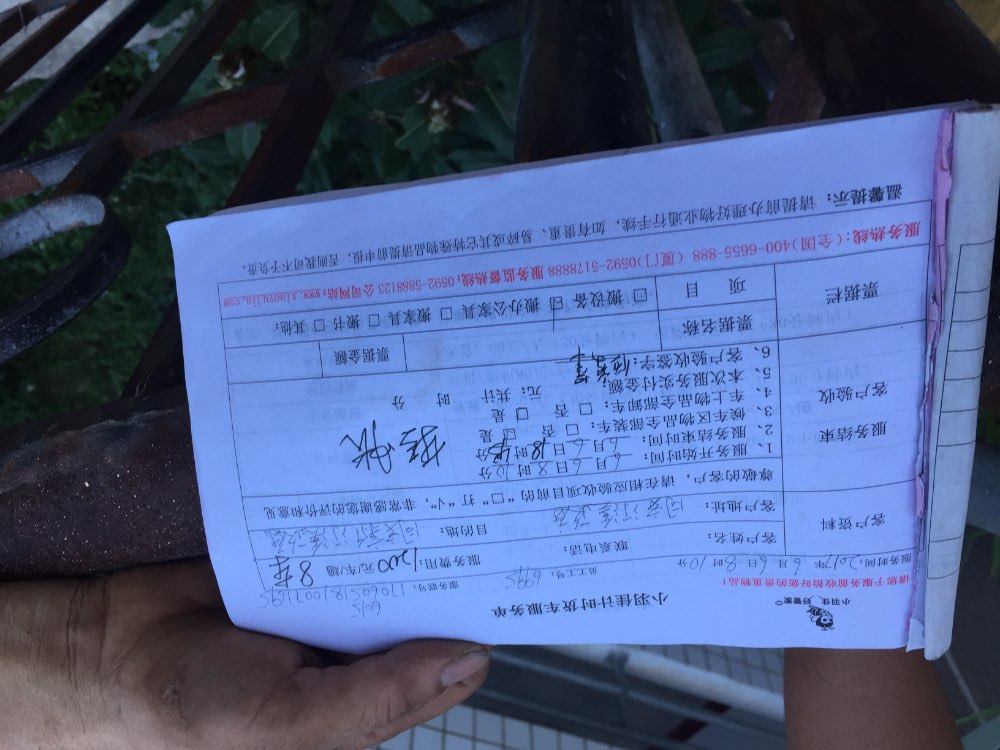 小羽佳 好管家®
小羽佳计时货车服务单
请您于服务前收拾好您的贵重物品!
服务时间:2017年6月6日8时10分
员工工号:
服务账号:
客户资料
客户姓名:
联系电话:
服务费用:1200元/车趟 8车
客户地址:
目的地:
服务结束
客户验收
尊敬的客户,请在相应验收项目前的“□”打“√”,非常感谢您的评价和意见
1、服务开始时间:6月6日8时10分
2、服务结束时间:6月6日18时 分
3、候车区物品全部装车:□否 □是
4、车上物品全部卸车:□否 □是
5、本次服务实付金额: 元;共计: 时 分
6、客户验收签字:
票据栏
票据名称
票据金额
项 目
□搬设备 □搬办公家具 □搬家具 □搬书 □其他:
服务热线:(全国)400-6655-888 (厦门)0592-5178888 服务监督热线:0592-5888123 公司网站:www.xiaoyujia.com
温馨提示:请提前办理好物业通行手续,如有贵重、易碎或其它特殊物品请提前申报,否则我司不予负责。